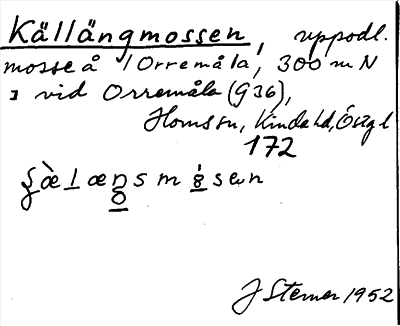 Källängmossen, uppodl.
mosse å 1 Orremåla, 300 m N
ɪ vid Orremåla (G36),
Hamssn, Kinda hd, Östgl
172
J Sterner 1952